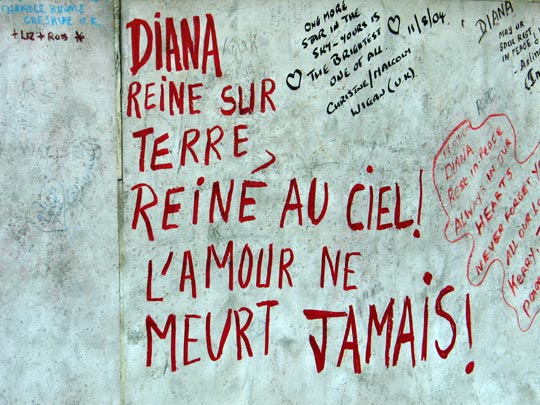 CHESHIRE U.K.
+ LIZ + ROB *
DIANA
REINE SUR
TERRE,
REINE AU CIEL!
L'AMOUR NE
MEURT JAMAIS!
ONE MORE
STAR IN THE
SKY - YOURS IS
THE BRIGHTEST
ONE OF ALL.
CHRISTINE/MALCOLM
WIGAN (U.K).
11/8/04
DIANA
MAY OR
SOUL REST
IN PEACE
DIANA
REST IN PEACE
ALWAYS IN OUR
HEARTS
NEVER FORGET
ALL OUR
KERRY,